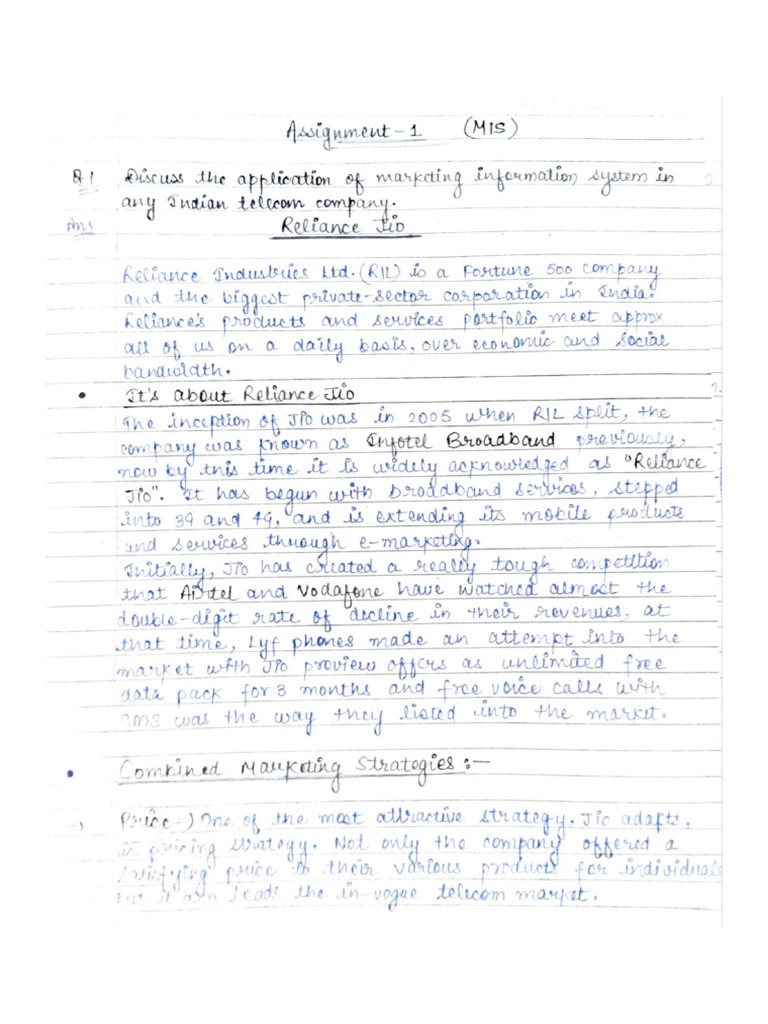 Assignment-1 (MIS)
Q1 Discuss the application of marketing information system in
any Indian telecom company.
Ans Reliance Jio
Reliance Industries Ltd. (RIL) is a Fortune 500 company
and the biggest private-sector corporation in India.
Reliance's products and services portfolio meet approx
all of us on a daily basis, over economic and social
bandwidth.
• It's about Reliance Jio
The inception of Jio was in 2005 when RIL split, the
company was known as Infotel Broadband previously,
now by this time it is widely acknowledged as "Reliance
Jio". It has begun with broadband services, stepped
into 3G and 4G, and is extending its mobile products
and services through e-marketing.
Initially, Jio has created a really tough competition
that Airtel and Vodafone have watched almost the
double-digit rate of decline in their revenues. at
that time, Lyf phones made an attempt into the
market with Jio preview offers as unlimited free
data pack for 3 months and free voice calls with
SMS was the way they listed into the market.
• Combined Marketing Strategies :-
Price-) One of the most attractive strategy. Jio adapts,
is pricing strategy. Not only the company offered a
satisfying price to their various products for individuals
but it also leads the in-vogue telecom market.